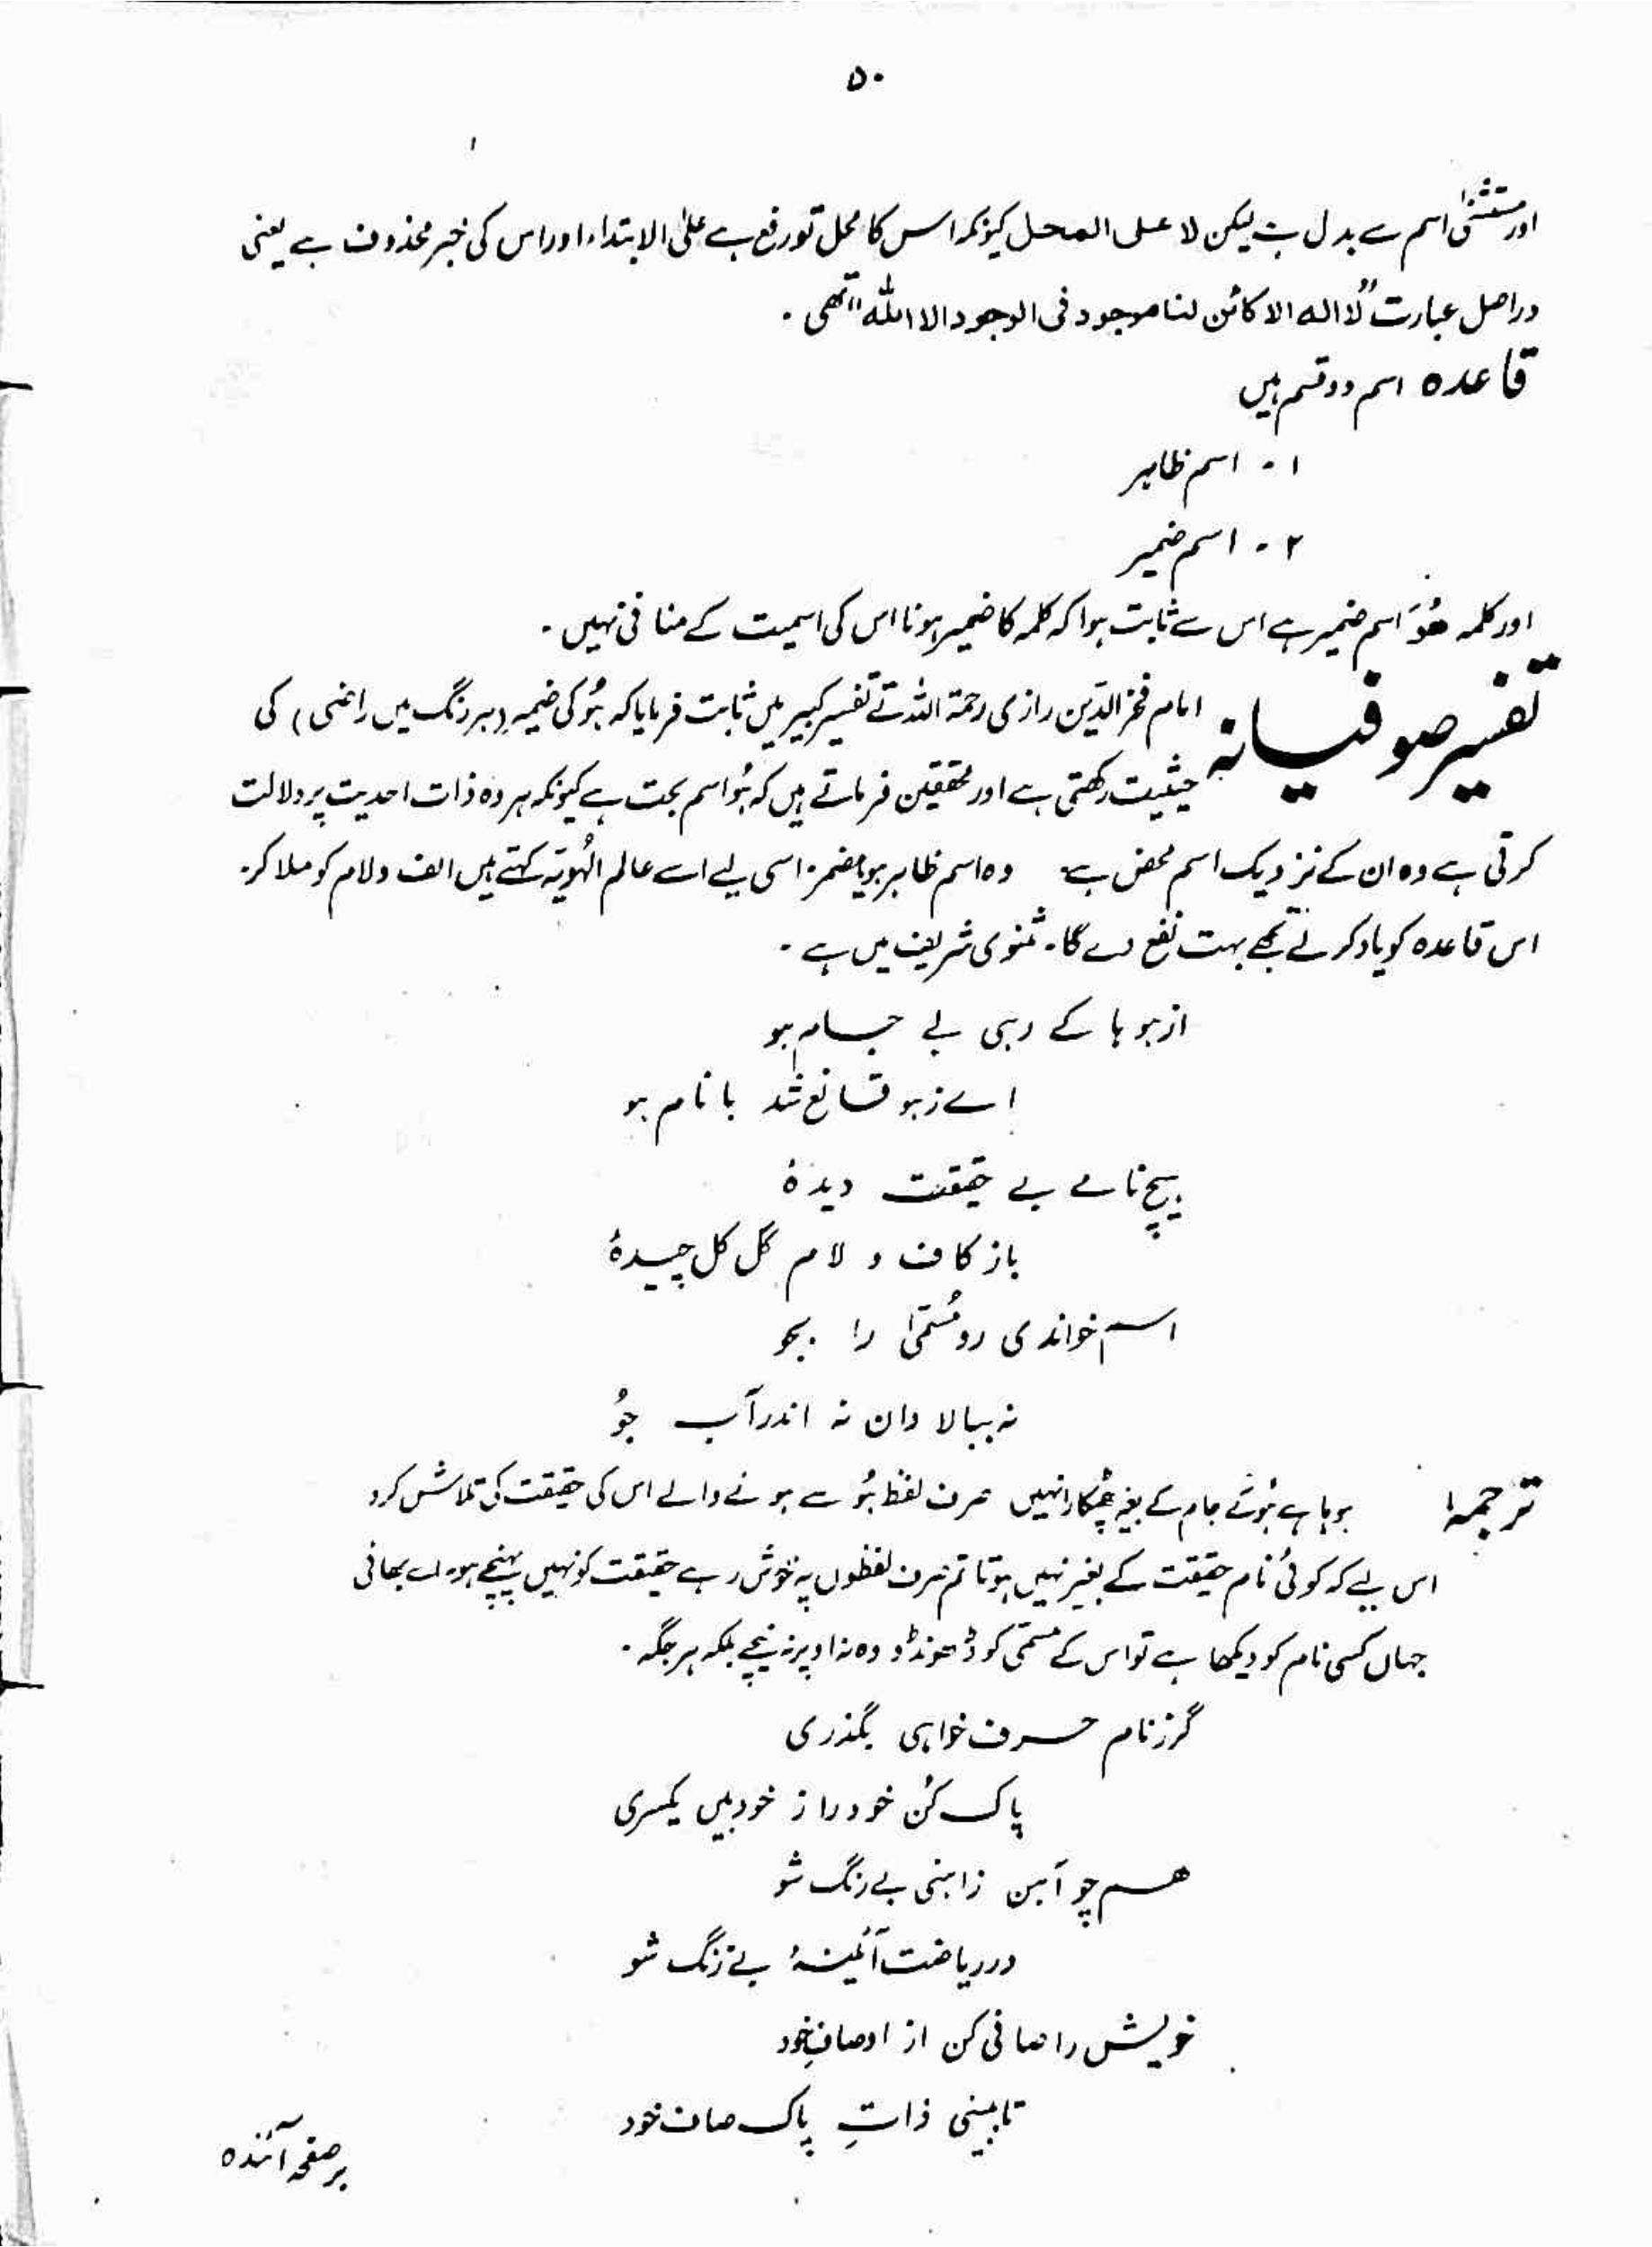 ۵۰
اور مستثنیٰ اسم سے بدل ہے لیکن لا علی المحل کیونکہ اس کا محل تو رفع ہے علیٰ الابتداء اور اس کی خبر محذوف ہے یعنی
دراصل عبارت "لا الہ الا کائن لنا موجود فی الوجود الا اللہ" تھی ۔
قاعدہ اسم دو قسم ہیں
۱ - اسم ظاہر
۲ - اسم ضمیر
اور کلمہ ھُوَ اسم ضمیر ہے اس سے ثابت ہوا کہ کلمہ کا ضمیر ہونا اس کی اسمیت کے منافی نہیں ۔
تفسیر صوفیانہ امام فخر الدّین رازی رحمۃ اللہ نے تفسیر کبیر میں ثابت فرمایا کہ ہُو کی ضمیر (ہر رنگ میں راضی) کی
حیثیت رکھتی ہے اور محققین فرماتے ہیں کہ ہُو اسم بحت ہے کیونکہ ہر وہ ذات احدیت پر دلالت
کرتی ہے وہ ان کے نزدیک اسم محض ہے وہ اسم ظاہر ہو یا مضمر۔ اسی لیے اسے عالم الہُویۃ کہتے ہیں الف و لام کو ملا کر۔
اس قاعدہ کو یاد کر لے تجھے بہت نفع دے گا۔ مثنوی شریف میں ہے ۔
از ہو ہا کے رہی بے جام ہو
اے ز ہو قانع شد با نام ہو
ہیچ نامے بے حقیقت دیدۂ
باز کاف و لام گل گل چیدۂ
اسم خواندی رو مُسمّیٰ را بجو
نہ ببالا دان نہ اندر آب جُو
ترجمہ: ہو ہا سے ہُو کے جام کے بغیر چھٹکارا نہیں صرف لفظ ہُو سے ہونے والے اس کی حقیقت کی تلاش کرو
اس لیے کہ کوئی نام حقیقت کے بغیر نہیں ہوتا تم صرف لفظوں پہ خوش رہے حقیقت کو نہیں پہنچے ہو۔ اے بھائی
جہاں کسی نام کو دیکھا ہے تو اس کے مسمّی کو ڈھونڈو وہ نہ اوپر نہ نیچے بلکہ ہر جگہ ۔
گر ز نام حرف خواہی بگذری
پاک کُن خود را ز خود ہیں یکسری
ہم چو آہن ز اہنی بے رنگ شو
در ریاضت آئینۂ بے زنگ شو
خویش را صافی کن از اوصافِ خود
تا ببینی ذاتِ پاک صاف خود
بر صفحہ آئندہ